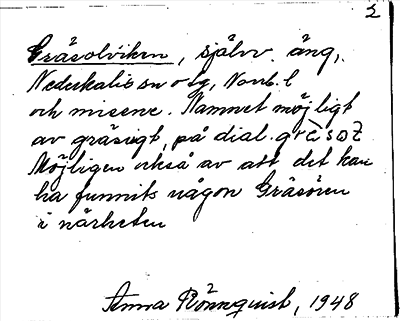 2
Gräsolviken, självv. äng,
Nederkalix sn o lg, Norrb. l
och misene. Namnet möjligt
av gräsigt, på dial.
Möjligen också av att det kan
ha funnits någon Gräsören
i närheten
Anna Rönnquist, 1948